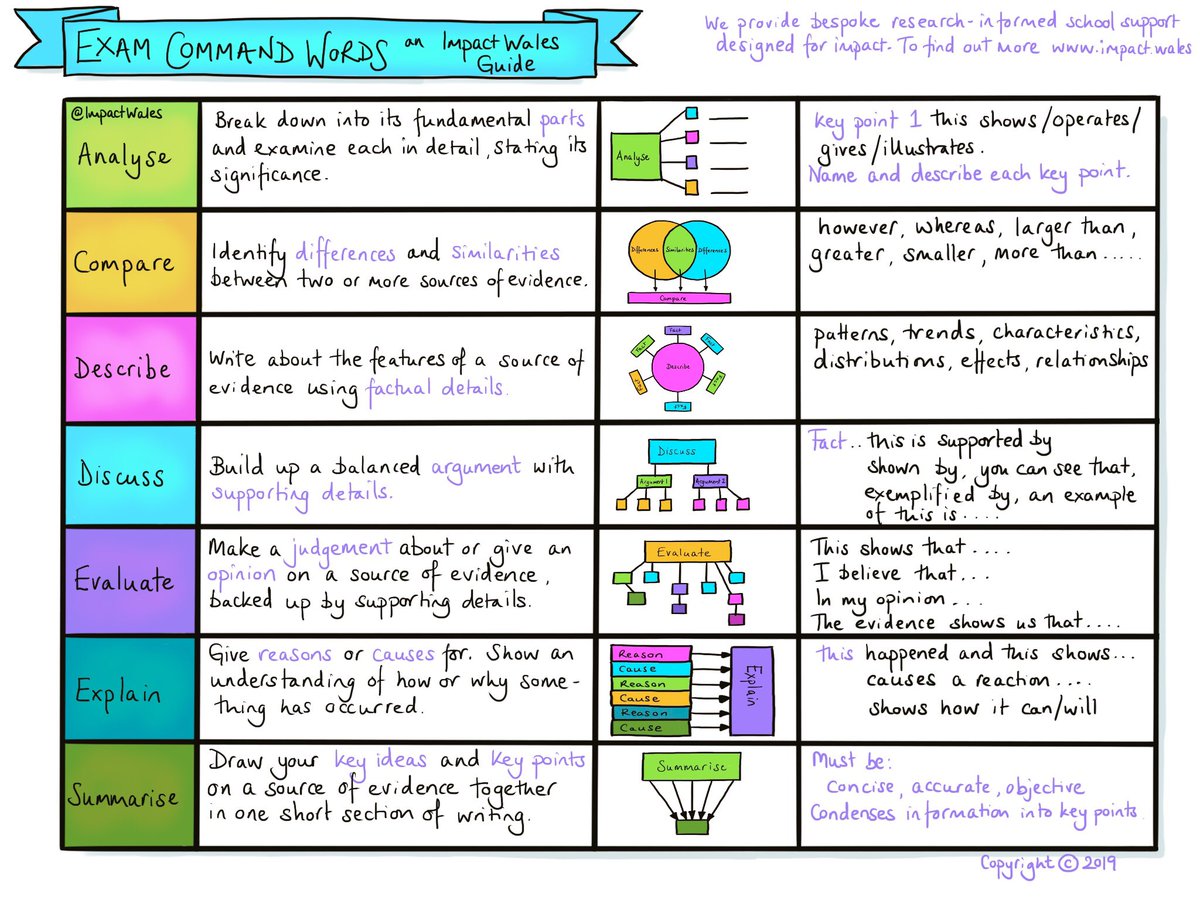 EXAM COMMAND WORDS an Impact Wales Guide
We provide bespoke research-informed school support
designed for impact. To find out more www.impact.wales
@ImpactWales
Analyse
Break down into its fundamental parts
and examine each in detail, stating its
significance.
Analyse
Key point 1 this shows/operates/
gives/illustrates.
Name and describe each key point.
Compare
Identify differences and similarities
between two or more sources of evidence.
Differences Similarities Differences
Compare
however, whereas, larger than,
greater, smaller, more than .....
Describe
Write about the features of a source of
evidence using factual details.
Fact
Fact
Fact
Describe
Fact
Fact
Fact
patterns, trends, characteristics,
distributions, effects, relationships
Discuss
Build up a balanced argument with
supporting details.
Discuss
Argument 1 Argument 2
Fact.. this is supported by
shown by, you can see that,
exemplified by, an example
of this is ....
Evaluate
Make a judgement about or give an
opinion on a source of evidence,
backed up by supporting details.
Evaluate
This shows that ....
I believe that...
In my opinion ...
The evidence shows us that ....
Explain
Give reasons or causes for. Show an
understanding of how or why some-
thing has occurred.
Reason
Cause
Reason
Cause
Reason
Cause
Explain
this happened and this shows...
causes a reaction ....
shows how it can/will
Summarise
Draw your key ideas and key points
on a source of evidence together
in one short section of writing.
Summarise
Must be:
Concise, accurate, objective
Condenses information into key points
Copyright © 2019